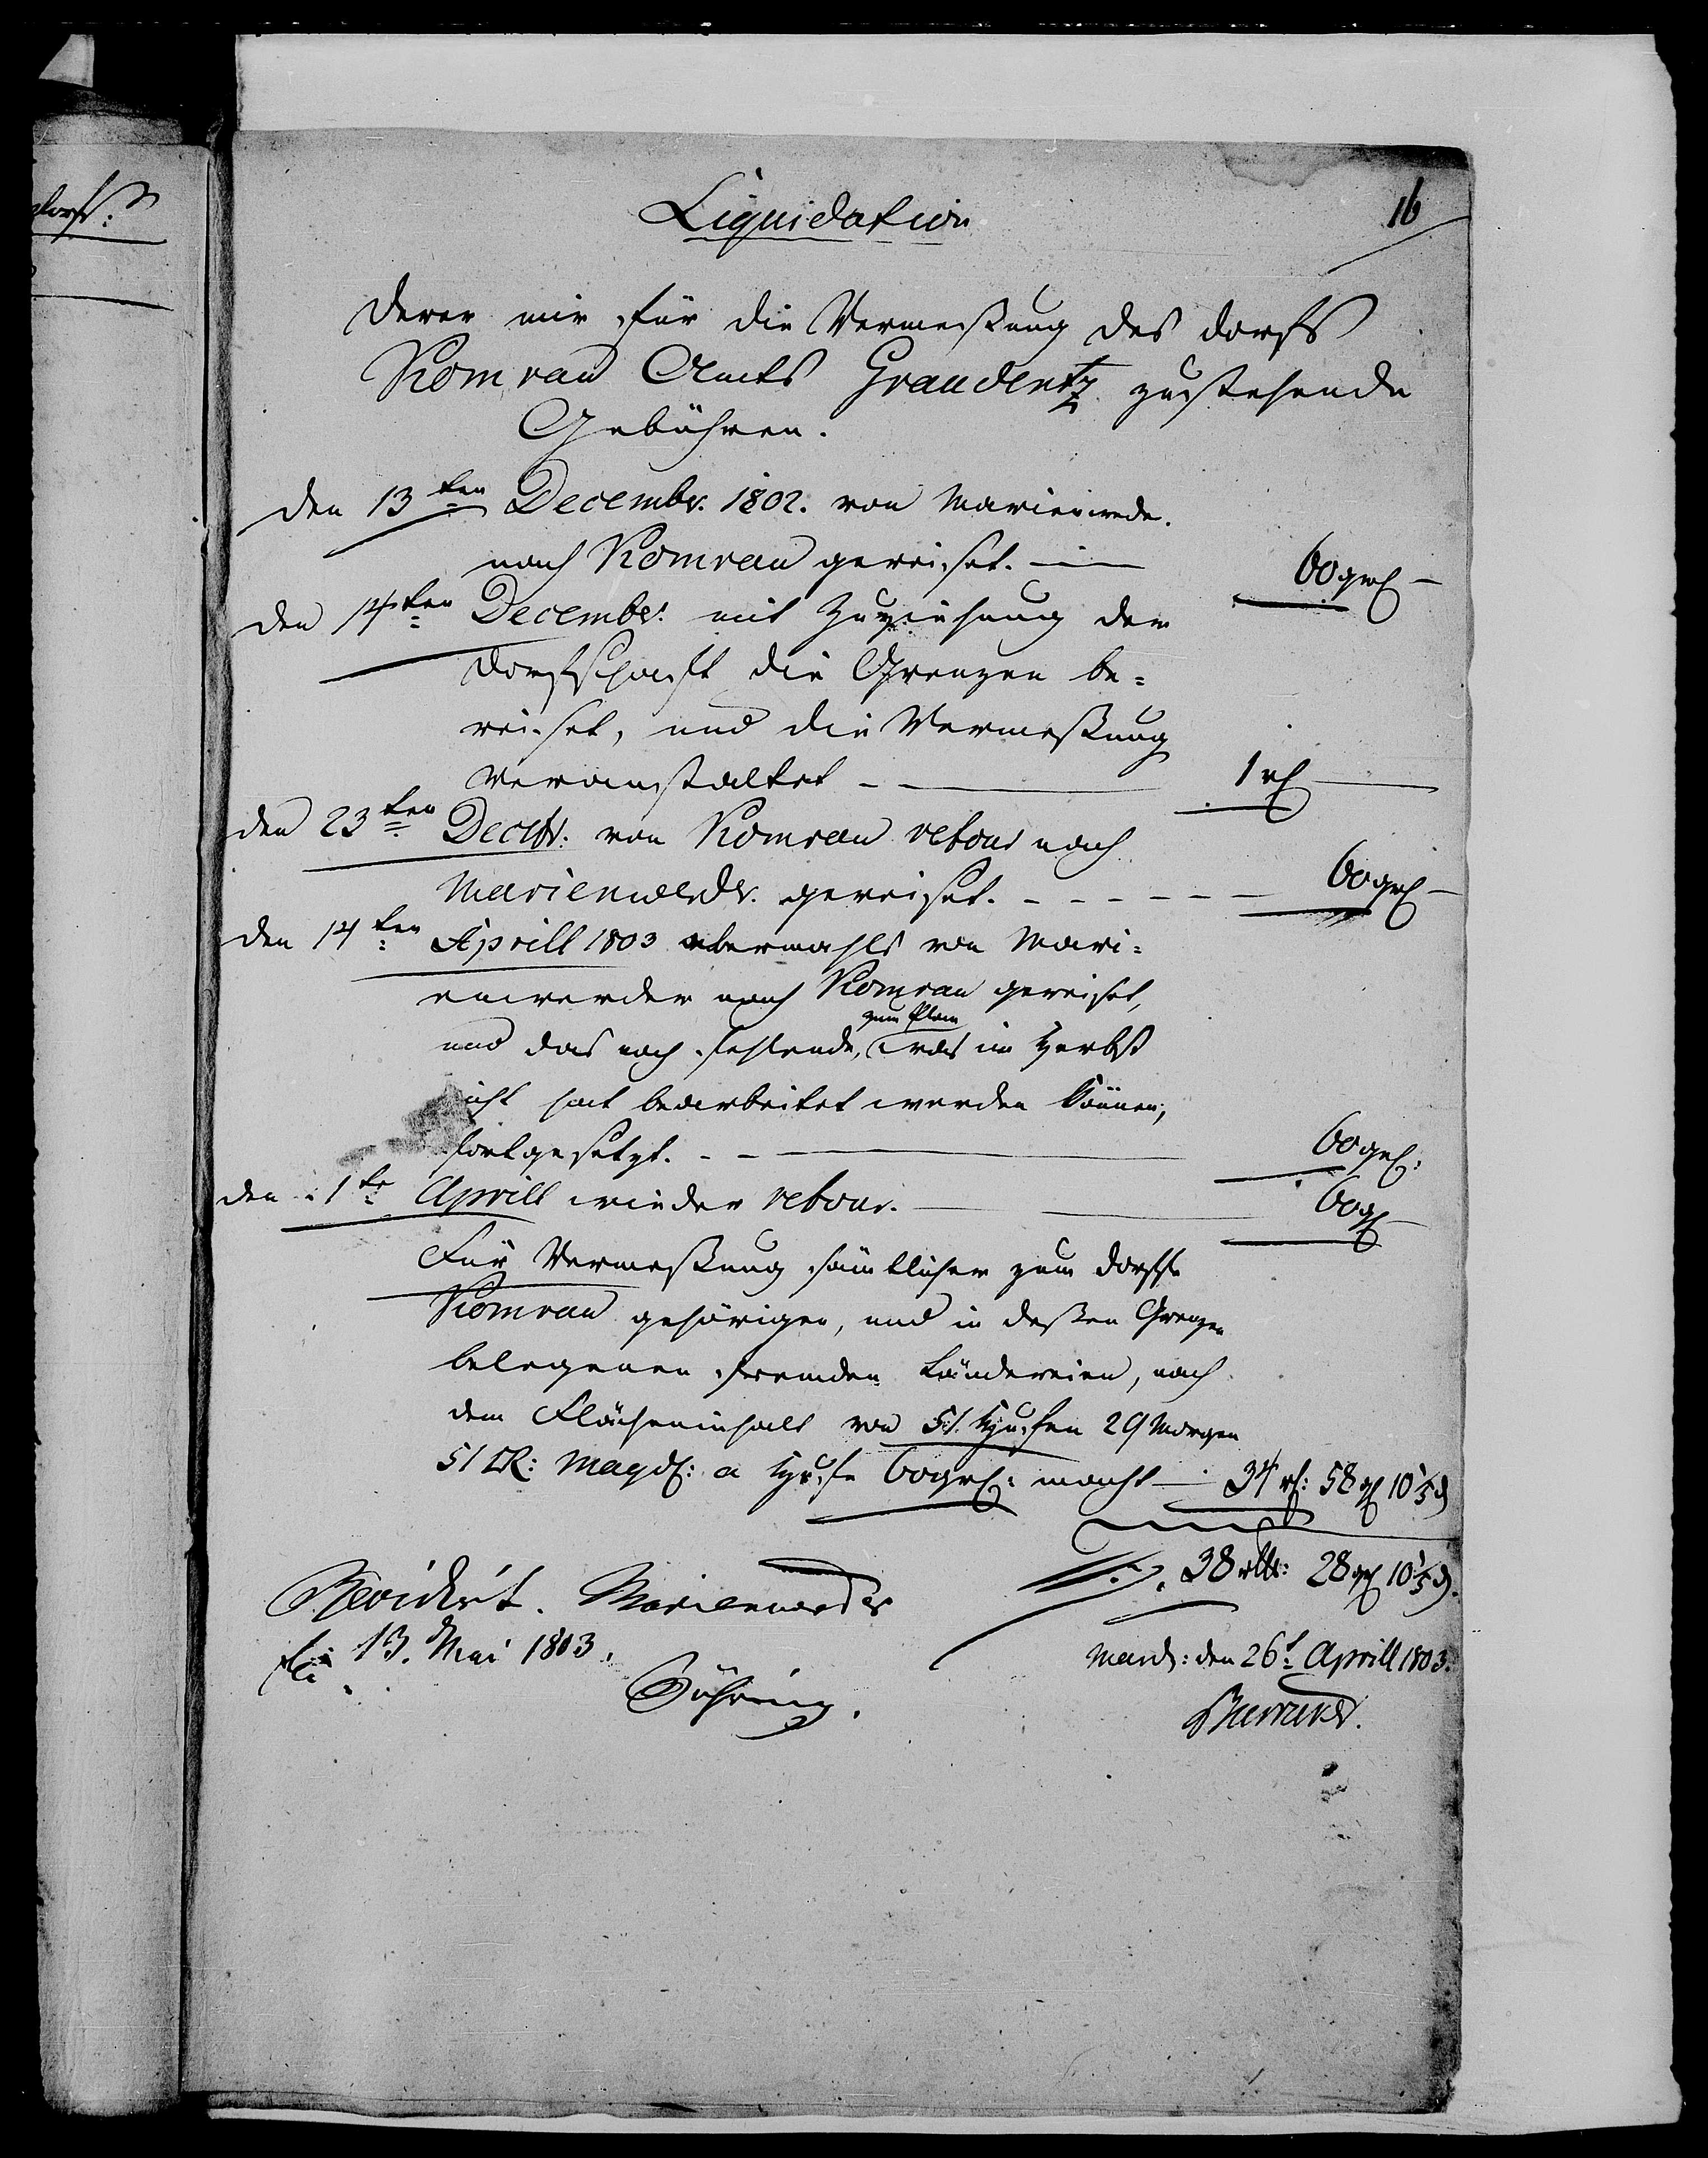 dorfs:
Liquidation
16
Derer mir für die Vermeßung des Dorfs
Komrau Amts Graudentz zustehende
Gebühren.
den 13ten Decembr. 1802. von Marienwerder.
nach Komrau gereiset. — 60 gr —
den 14ten Decembr. mit Zuziehung der
Dorfschaft die Grenzen be-
reiset, und die Vermeßung
veranstaltet — 1 rt —
den 23ten Decbr. von Komrau retour nach
Marienwerder. gereiset. - - - - - 60 gr —
den 14ten Aprill 1803 abermahls von Mari-
enwerder nach Komrau gereiset,
zum Plan
und das noch fehlende, was im Herbst
nicht hat bearbeitet werden können,
fortgesetzt. - - — 60 gr:
den 1te Aprill wieder retour. — 60 gr
Für Vermeßung sämtlicher zum Dorffe
Komrau gehörigen, und in deßen Grenzen
belegenen fremden Ländereien, nach
dem Flächeninhalt von 51. Hufen 29 Morgen
51 □R: Magd: a Hufe 60 gr: macht — 34 rt: 58 gr 10 1/5 d
38 rtlr: 28 gr 10 1/5 d.
Revidirt. Marienwerder
13. Mai 1803.
Mard: den 26t Aprill 1803.